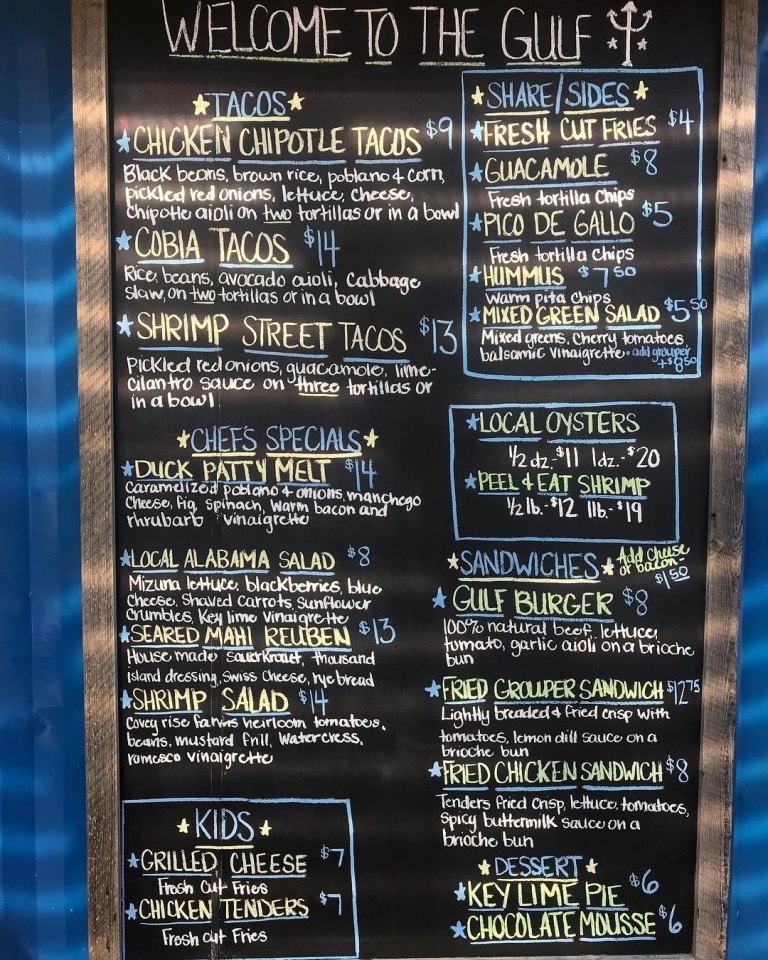 WELCOME TO THE GULF
TACOS
CHICKEN CHIPOTLE TACOS $9
Black beans, brown rice, poblano & corn,
pickled red onions, lettuce, cheese,
chipotle aioli on two tortillas or in a bowl
COBIA TACOS $14
Rice, beans, avocado aioli, cabbage
slaw, on two tortillas or in a bowl
SHRIMP STREET TACOS $13
Pickled red onions, guacamole, lime-
cilantro sauce on three tortillas or
in a bowl
CHEF'S SPECIALS
DUCK PATTY MELT $14
Caramelized poblano & onions, manchego
cheese, fig, spinach, warm bacon and
rhrubarb vinaigrette
LOCAL ALABAMA SALAD $8
Mizuna lettuce, blackberries, blue
cheese, shaved carrots, sunflower
crumbles, Key lime vinaigrette
SEARED MAHI REUBEN $13
House made sauerkraut, thousand
island dressing, swiss cheese, rye bread
SHRIMP SALAD $14
Covey rise farms heirloom tomatoes,
beans, mustard frill, watercress,
romesco vinaigrette
KIDS
GRILLED CHEESE $7
Fresh Cut Fries
CHICKEN TENDERS $7
Fresh cut Fries
SHARE/SIDES
FRESH CUT FRIES $4
GUACAMOLE $8
Fresh tortilla chips
PICO DE GALLO $5
Fresh tortilla chips
HUMMUS $7.50
warm pita chips
MIXED GREEN SALAD $5.50
Mixed greens, cherry tomatoes
balsamic vinaigrette • add grouper
+$8.50
LOCAL OYSTERS
1/2 dz.-$11 1dz.-$20
PEEL & EAT SHRIMP
1/2 lb.-$12 1lb.-$19
SANDWICHES
Add cheese
or bacon-
$1.50
GULF BURGER $8
100% natural beef, lettuce,
tomato, garlic aioli on a brioche
bun
FRIED GROUPER SANDWICH $12.75
Lightly breaded & fried crisp with
tomatoes, lemon dill sauce on a
brioche bun
FRIED CHICKEN SANDWICH $8
Tenders fried crisp, lettuce, tomatoes,
spicy buttermilk sauce on a
brioche bun
DESSERT
KEY LIME PIE $6
CHOCOLATE MOUSSE $6